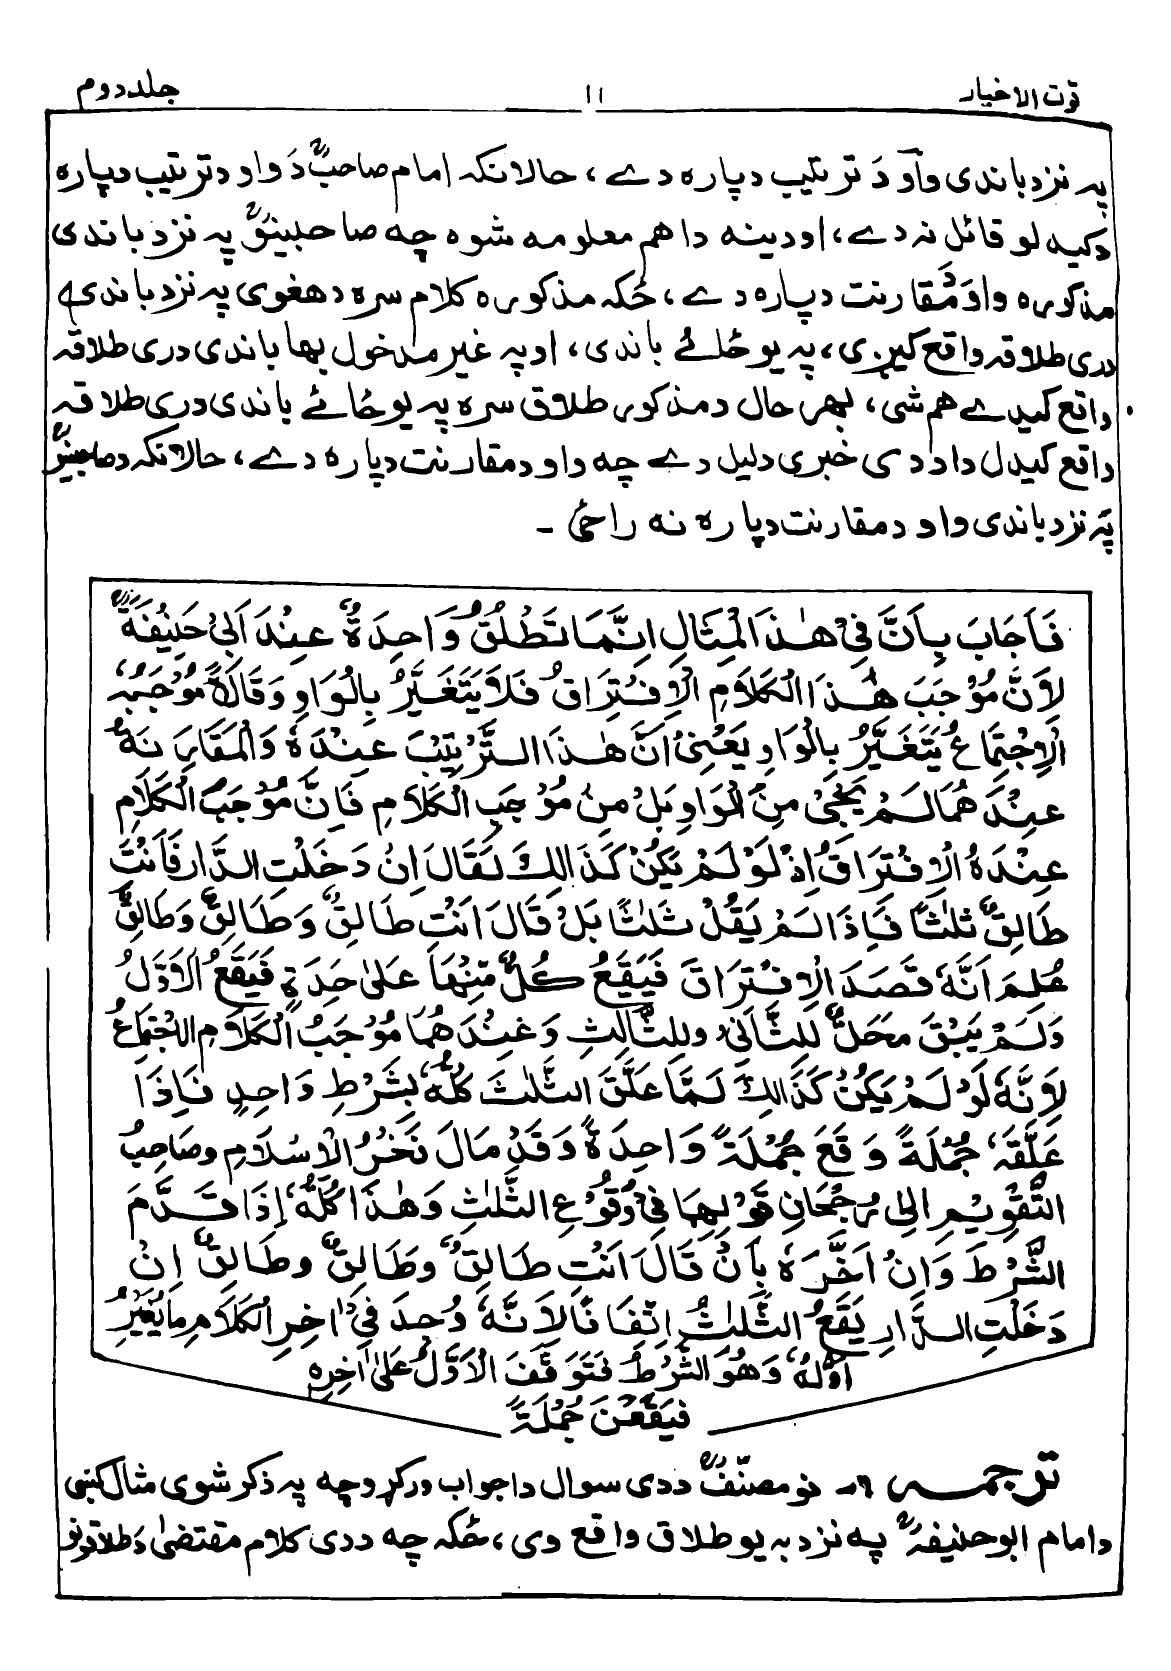 قوت الاخیار ۱۱ جلد دوم
په نزد باندی واو دَ ترتیب دپاره دے، حالانکه امام صاحبؒ دَ واو دترتیب دپاره
دکیدلو قائل نه دے، اودینه دا هم معلومه شوه چه صاحبینؒ په نزد باندی
مذکوره واو دَمُقارنت دپاره دے، ځکه مذکوره کلام سره دهغوی په نزد باندی
دری طلاقه واقع کیږی، په یو ځائے باندی، اوپه غیر مدخول بها باندی دری طلاقه
واقع کیدے هم شی، بهر حال دمذکور طلاق سره په یو ځائے باندی دری طلاقه
واقع کیدل داد دی خبری دلیل دے چه واو دمقارنت دپاره دے، حالانکه دصاحبینؒ
په نزد باندی واو دمقارنت دپاره نه راځی ۔
فَاَجَابَ بِاَنَّ فِیْ هٰذَا الْمِثَالِ اِنَّمَا تَطْلُقُ وَاحِدَةٌ عِنْدَ اَبِیْ حَنِیْفَةَؒ
لِاَنَّ مُوْجَبَ هٰذَا الْکَلَامِ الْاِفْتِرَاقُ فَلَا یَتَغَیَّرُ بِالْوَاوِ وَقَالَا مُوْجَبُهٗ
الْاِجْتِمَاعُ یَتَغَیَّرُ بِالْوَاوِ یَعْنِیْ اَنَّ هٰذَا التَّرْتِیْبَ عِنْدَهٗ وَالْمُقَارَنَةَ
عِنْدَهُمَا لَمْ یَجِیْٔ مِنَ الْوَاوِ بَلْ مِنْ مُوْجَبِ الْکَلَامِ فَاِنَّ مُوْجَبَ الْکَلَامِ
عِنْدَهُ الْاِفْتِرَاقُ اِذْ لَوْ لَمْ یَکُنْ کَذَالِكَ لَقَالَ اِنْ دَخَلْتِ الدَّارَ فَاَنْتِ
طَالِقٌ ثَلٰثًا فَاِذَا لَمْ یَقُلْ ثَلٰثًا بَلْ قَالَ اَنْتِ طَالِقٌ وَطَالِقٌ وَطَالِقٌ
عُلِمَ اَنَّهٗ قَصَدَ الْاِفْتِرَاقَ فَیَقَعُ کُلٌّ مِّنْهَا عَلٰی حِدَةٍ فَیَقَعُ الْاَوَّلُ
وَلَمْ یَبْقَ مَحَلٌّ لِلثَّانِیْ وللثَّالِثِ وَعِنْدَهُمَا مُوْجَبُ الْکَلَامِ الْاِجْتِمَاعُ
لِاَنَّهٗ لَوْ لَمْ یَکُنْ کَذَالِكَ لَمَّا عَلَّقَ الثَّلٰثَ کُلَّهٗ بِشَرْطٍ وَاحِدٍ فَاِذَا
عَلَّقَهٗ جُمْلَةً وَقَعَ جُمْلَةً وَاحِدَةً وَقَدْ مَالَ فَخْرُ الْاِسْلَامِ وصَاحِبُ
التَّقْوِیْمِ اِلٰی رُجْحَانِ قَوْلِهِمَا فِیْ وُقُوْعِ الثَّلٰثِ وَهٰذَا کُلُّهٗ اِذَا قَدَّمَ
الشَّرْطَ وَاِنْ اَخَّرَهٗ بِاَنْ قَالَ اَنْتِ طَالِقٌ وَطَالِقٌ وطَالِقٌ اِنْ
دَخَلْتِ الدَّارَ یَقَعُ الثَّلٰثُ اِتِّفَاقًا لِاَنَّهٗ وُجِدَ فِیْ اٰخِرِ الْکَلَامِ مَا یُغَیِّرُ
اَوَّلَهٗ وَهُوَ الشَّرْطُ فَتَوَقَّفَ الْاَوَّلُ عَلٰی اٰخِرِهٖ
فَیَقَعْنَ جُمْلَةً
ترجمه ۶۔ نو مصنّفؒ ددی سوال داجواب ورکړو چه په ذکر شوی مثال کښی
دامام ابوحنیفهؒ په نزد به یو طلاق واقع وی، ځکه چه ددی کلام مقتضیٰ دَطلاقونو